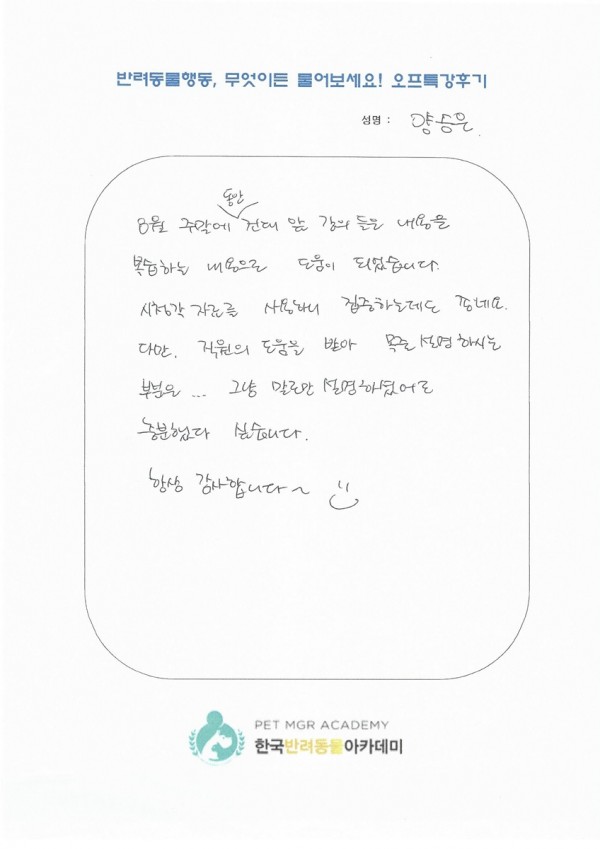 반려동물행동, 무엇이든 물어보세요! 오프특강후기
성명 : 양승은
동안
8월 주말에 건대 앞 강의 들은 내용을
복습하는 내용으로 도움이 되었습니다.
시청각 자료를 사용하니 집중하는데도 좋네요.
다만, 직원의 도움을 받아 목줄 설명하시는
부분은 ... 그냥 말로만 설명하셨어도
충분했다 싶습니다.
항상 감사합니다~
PET MGR ACADEMY
한국반려동물아카데미